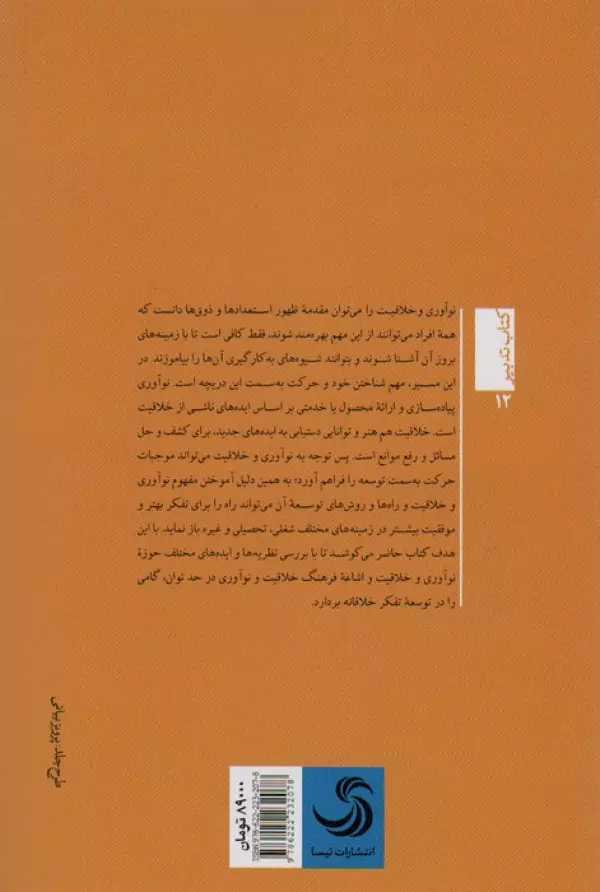 نوآوری و خلاقیت را می‌توان مقدمهٔ ظهور استعدادها و ذوق‌ها دانست که
همهٔ افراد می‌توانند از این مهم بهره‌مند شوند، فقط کافی است تا با زمینه‌های
بروز آن آشنا شوند و بتوانند شیوه‌های به‌کارگیری آن‌ها را بیاموزند. در
این مسیر، مهم شناختن خود و حرکت به‌سمت این دریچه است. نوآوری
پیاده‌سازی و ارائهٔ محصول یا خدمتی بر اساس ایده‌های ناشی از خلاقیت
است. خلاقیت هم هنر و توانایی دستیابی به ایده‌های جدید، برای کشف و حل
مسائل و رفع موانع است. پس توجه به نوآوری و خلاقیت می‌تواند موجبات
حرکت به‌سمت توسعه را فراهم آورد؛ به همین دلیل آموختن مفهوم نوآوری
و خلاقیت و راه‌ها و روش‌های توسعهٔ آن می‌تواند راه را برای تفکر بهتر و
موفقیت بیشتر در زمینه‌های مختلف شغلی، تحصیلی و غیره باز نماید. با این
هدف کتاب حاضر می‌کوشد تا با بررسی نظریه‌ها و ایده‌های مختلف حوزهٔ
نوآوری و خلاقیت و اشاعهٔ فرهنگ خلاقیت و نوآوری در حد توان، گامی
را در توسعهٔ تفکر خلاقانه بردارد.
کتاب تدبیر
۱۲
طرح جلد: پرویز بیانی
۸۹۰۰۰ تومان
ISBN 978-622-223-207-8
9786222232078
انتشارات تیسا